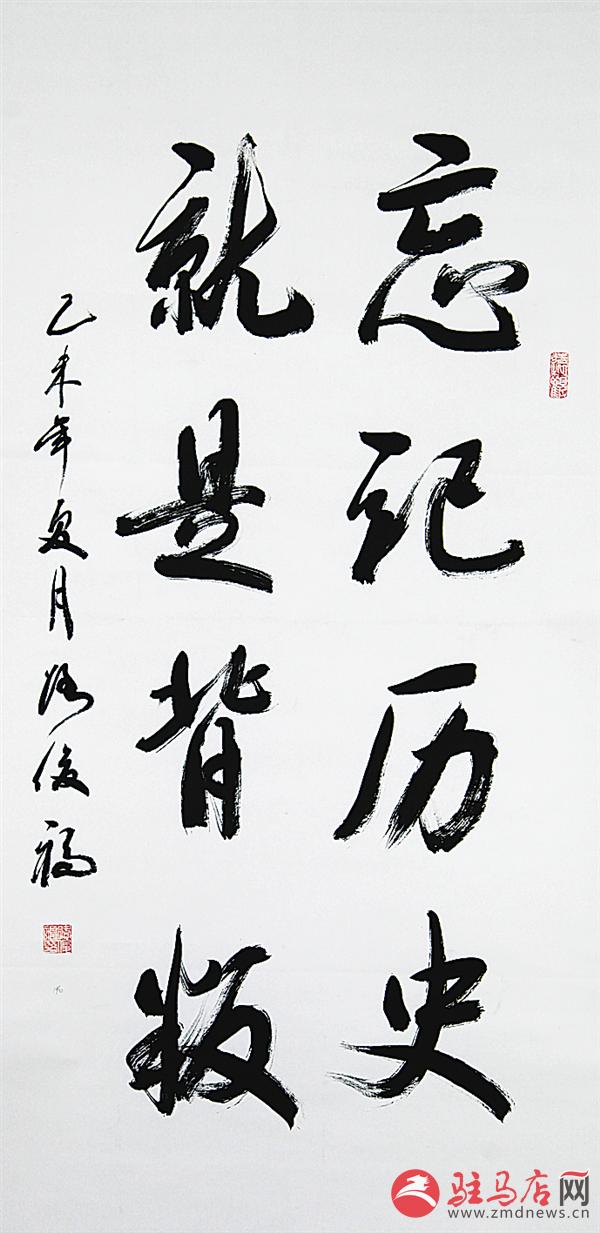 忘记历史
就是背叛
乙未年夏月路俊福
驻马店网
www.zmdnews.cn